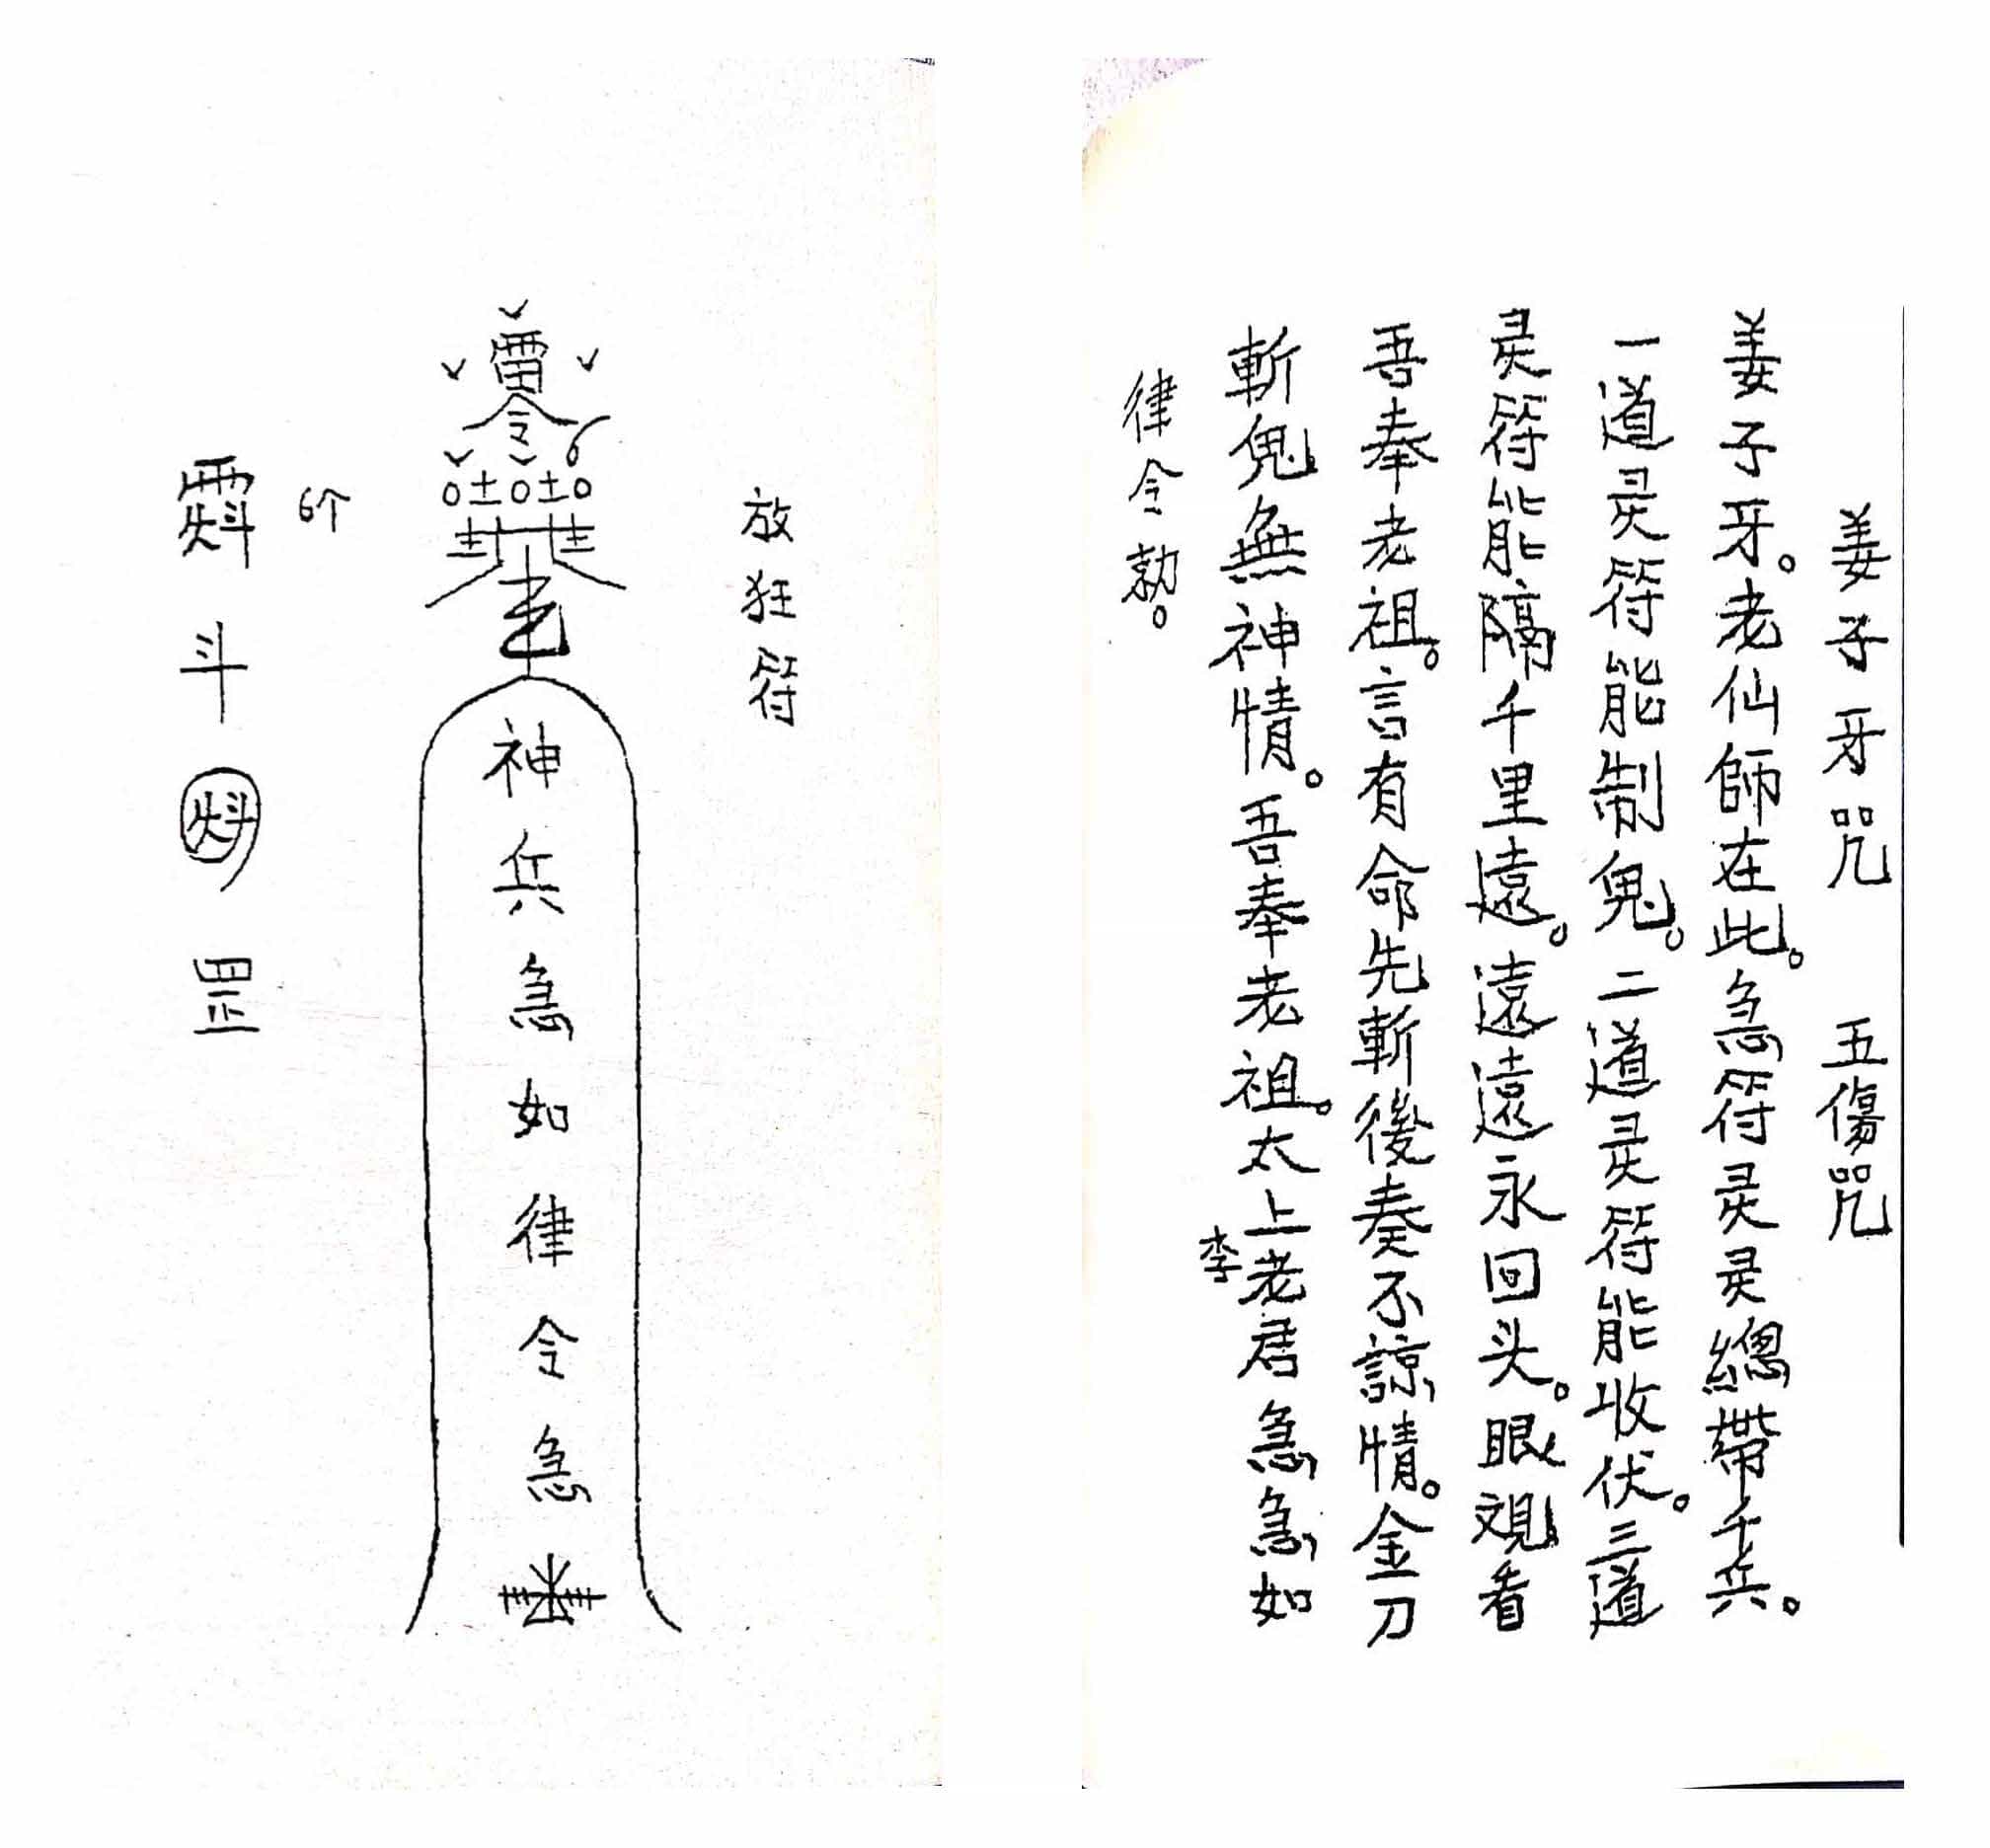 姜子牙咒 五傷咒
姜子牙。老仙師在此。急符灵灵總帶千兵。
一道灵符能制鬼。二道灵符能收伏。三道
灵符能隔千里遠。遠遠永回头。眼观看
吾奉老祖。言有命先斬後奏不諒情。金刀
斬鬼無神情。吾奉老祖。太上老君急急如
李
律令勅。
放狂符
雷令
神兵急如律令急
6个
斗
罡